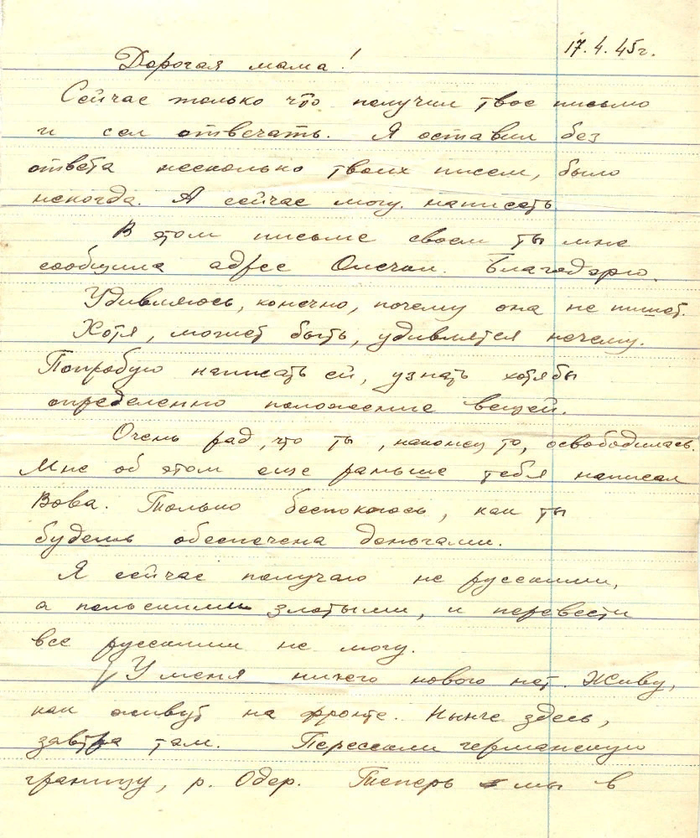 17.4.45г.
Дорогая мама!
Сейчас только что получил твое письмо
и сел отвечать. Я оставил без
ответа несколько твоих писем, было
некогда. А сейчас могу написать.
В этом письме своем ты мне
сообщила адрес Олечки. Благодарю.
Удивляюсь, конечно, почему она не пишет.
Хотя, может быть, удивлятся нечему.
Попробую написать ей, узнать хотябы
определенно положение вещей.
Очень рад, что ты, наконец то, освободилась.
Мне об этом еще раньше тебя написал
Вова. Только беспокоюсь, как ты
будешь обеспечена деньгами.
Я сейчас получаю не русскими,
а польскими злотыми, и перевести
все русскими не могу.
У меня ничего нового нет. Живу,
как живут на фронте. Нынче здесь,
завтра там. Пересекли германскую
границу, р. Одер. Теперь мы в